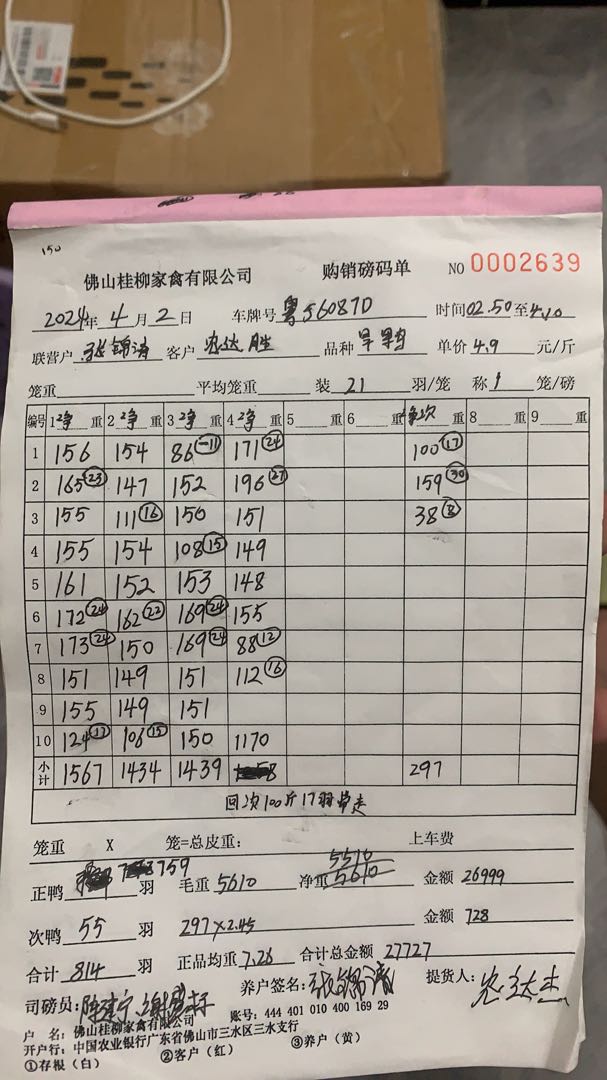 150
佛山桂柳家禽有限公司 购销磅码单 NO 0002639
2024年 4月 2日 车牌号 粤S6087D 时间02.50至4.10
联营户 张锦涛 客户 品种 单价 4.9 元/斤
笼重 平均笼重 装 21 羽/笼 称 1 笼/磅
编号 1净重 2净重 3净重 4净重 5 重 6 重 次 重 8 重 9 重
1 156 154 86 -11 171 24 100 17
2 165 23 147 152 196 27 159 30
3 155 111 16 150 151 38 8
4 155 154 108 15 149
5 161 152 153 148
6 172 24 162 22 169 24 155
7 173 24 150 169 24 88 12
8 151 149 151 112 16
9 155 149 151
10 124 106 15 150 1170
小计 1567 1434 1439 297
回次100斤17羽带走
笼重 X 笼=总皮重: 上车费
5510
正鸭 759 羽 毛重 5610 净重 5610 金额 26999
次鸭 55 羽 297×2.45 金额 728
合计 814 羽 正品均重 7.26 合计总金额 27727
司磅员: 养户签名: 张锦涛 提货人:
户 名: 佛山桂柳家禽有限公司 账号: 444 401 010 400 169 29
开户行: 中国农业银行广东省佛山市三水区三水支行
①存根（白） ②客户（红） ③养户（黄）